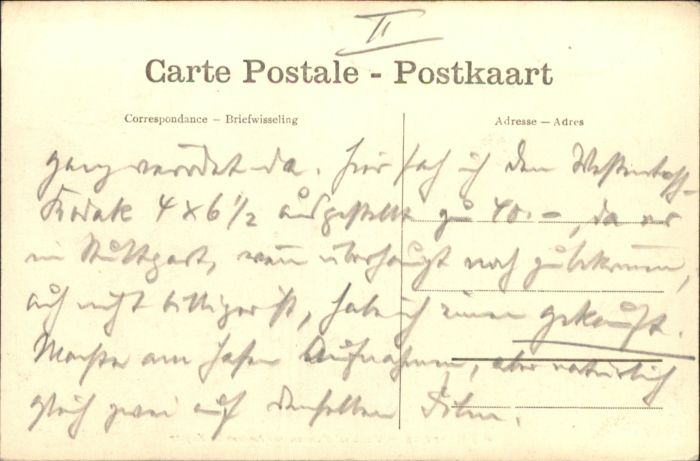 II
Carte Postale - Postkaart
Correspondance — Briefwisseling
Adresse — Adres
ganz verödet da. Hier sah ich den Westentasch-
Kodak 4 x 6 1/2 ausgestellt zu 40.-, da er
in Stuttgart, wenn überhaupt noch zu bekommen,
auch nicht billiger ist, habe ich einen gekauft.
Machte am Hafen Aufnahmen, aber natürlich
gleich zwei auf denselben Film.